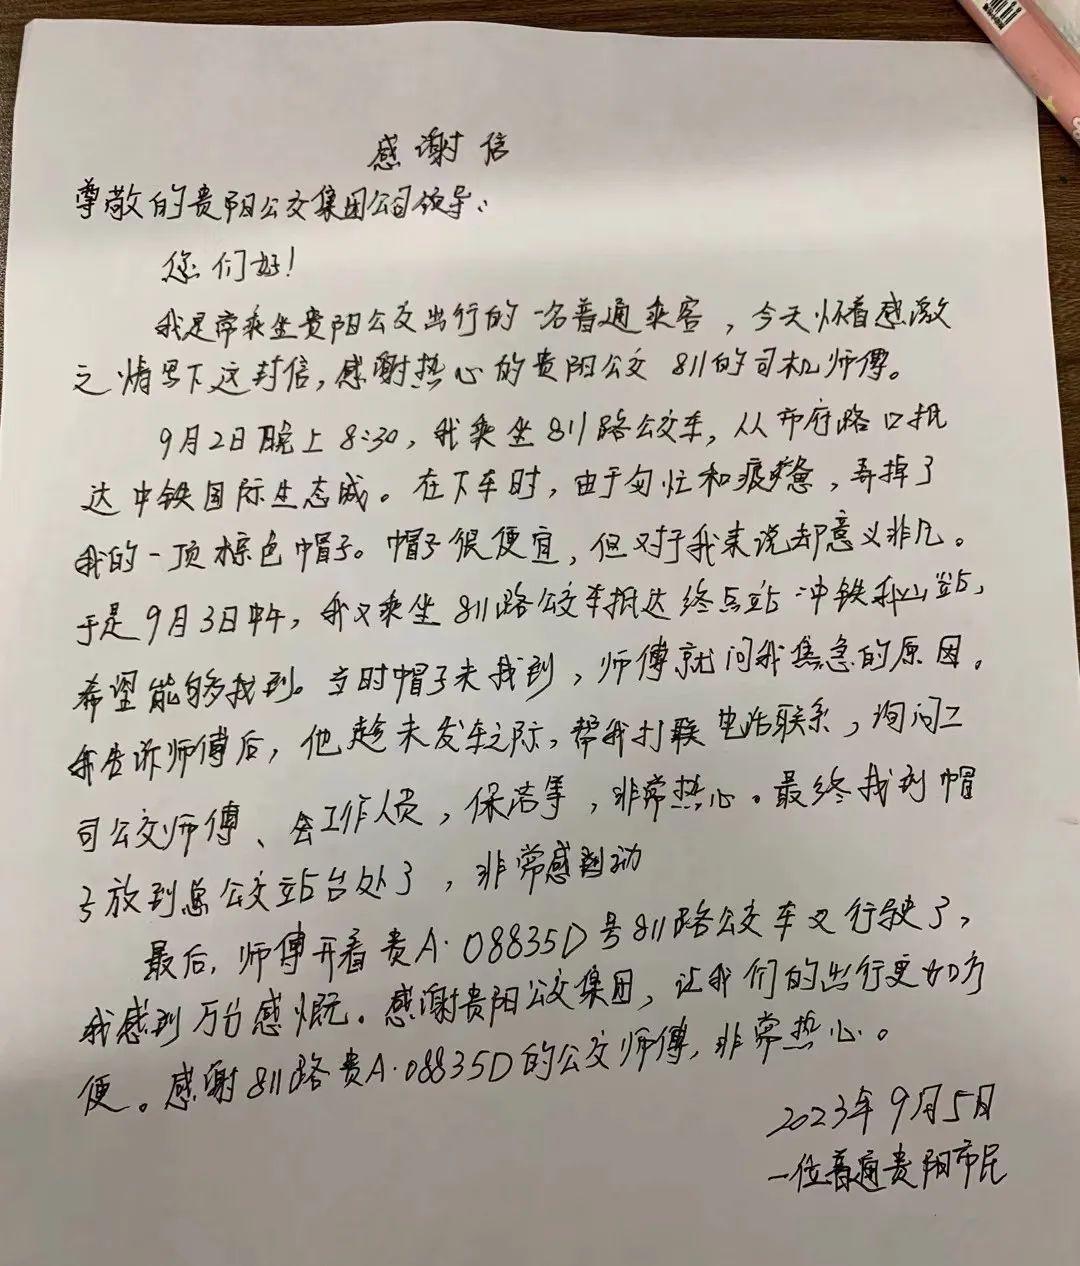 感谢信
尊敬的贵阳公交集团公司领导：
您们好！
我是常乘坐贵阳公交出行的一名普通乘客，今天怀着感激
之情写下这封信，感谢热心的贵阳公交811的司机师傅。
9月2日晚上8:30，我乘坐811路公交车，从市府路口抵
达中铁国际生态城。在下车时，由于匆忙和疲惫，弄掉了
我的一顶棕色帽子。帽子很便宜，但对于我来说却意义非凡。
于是9月3日中午，我又乘坐811路公交车抵达终点站中铁秋山站，
希望能够找到。当时帽子未找到，师傅就问我焦急的原因。
我告诉师傅后，他趁未发车之际，帮我打电话联系，询问工
司公交师傅、会工作人员，保洁等，非常热心。最终找到帽
子放到总公交站台处了，非常感动
最后，师傅开着贵A·08835D号811路公交车又行驶了，
我感到万分感慨。感谢贵阳公交集团，让我们的出行更加方
便。感谢811路贵A·08835D的公交师傅，非常热心。
2023年9月5日
一位普通贵阳市民